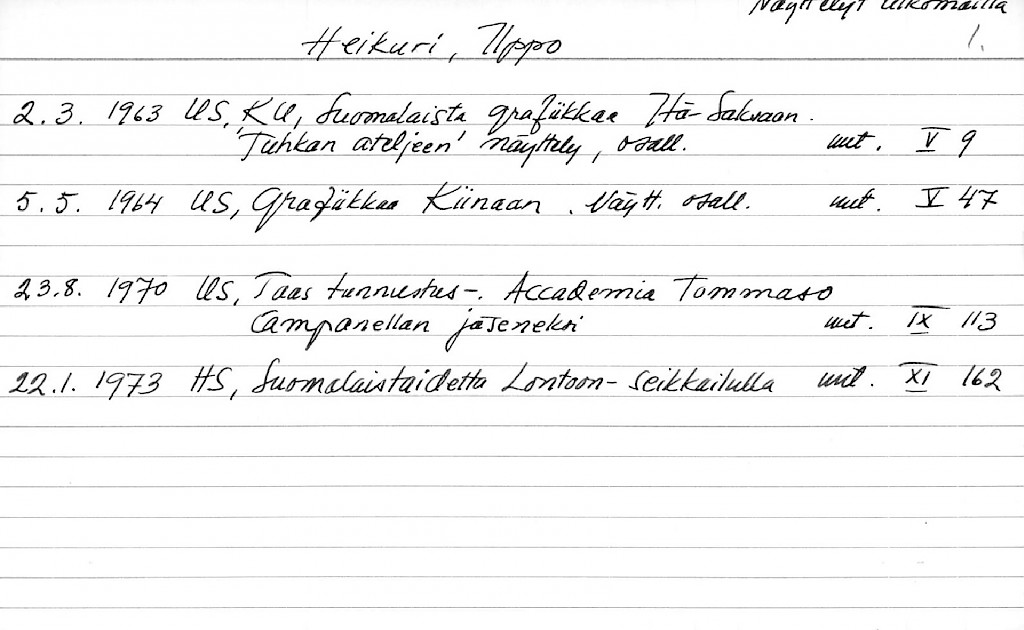 Näyttelyt ulkomailla
Heikuri, Ilppo 1.
2.3. 1963 US, KU, Suomalaista grafiikkaa Itä-Saksaan.
'Tuhkan ateljeen' näyttely, osall. uut. V 9
5.5. 1964 US, Grafiikkaa Kiinaan. Näytt. osall. uut. V 47
23.8. 1970 US, Taas tunnustus-. Accademia Tommaso
Campanellan jäseneksi uut. IX 113
22.1. 1973 HS, Suomalaistaidetta Lontoon- seikkailulla uut. XI 162